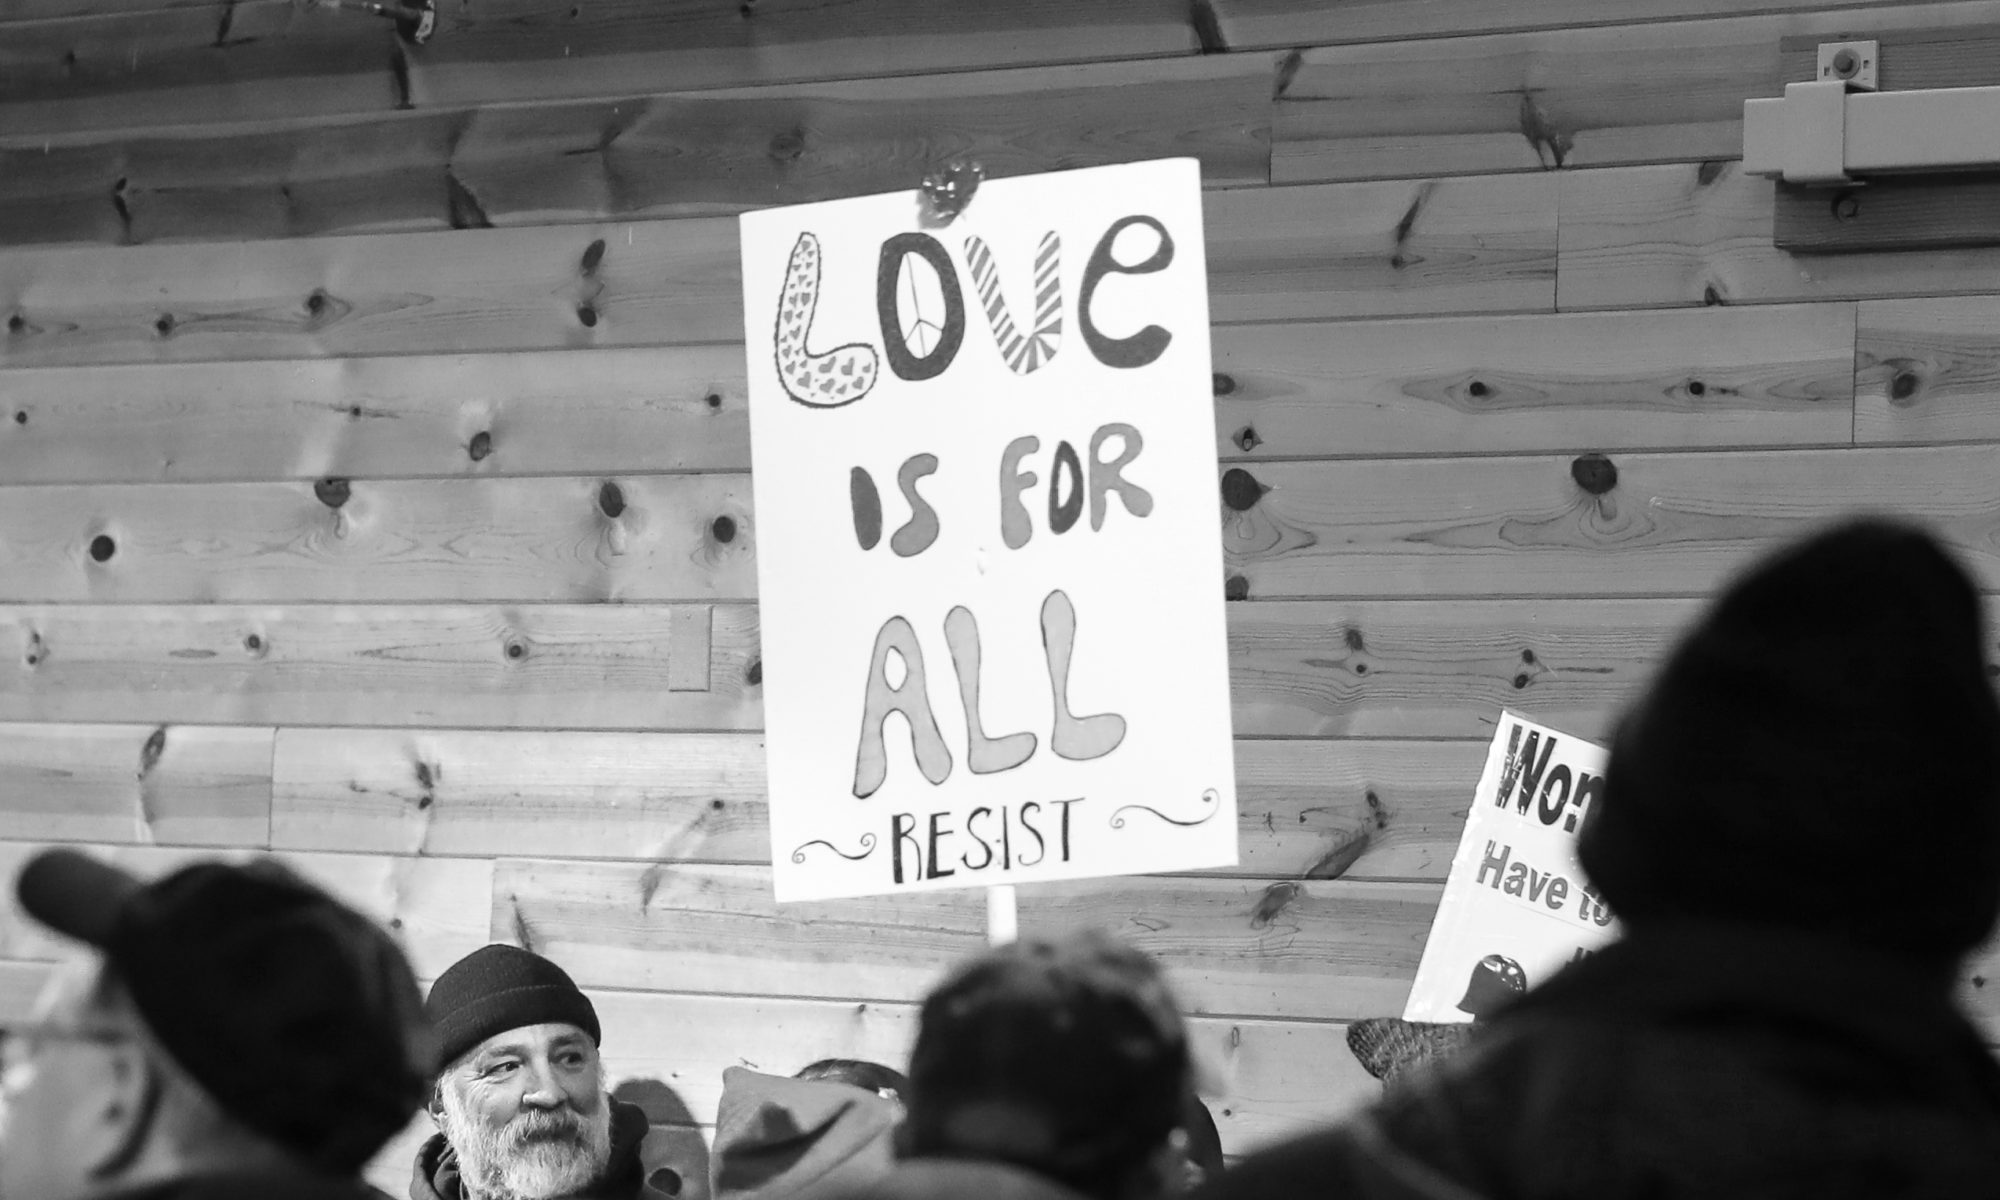 LOVE
IS FOR
ALL
RESIST
Have to